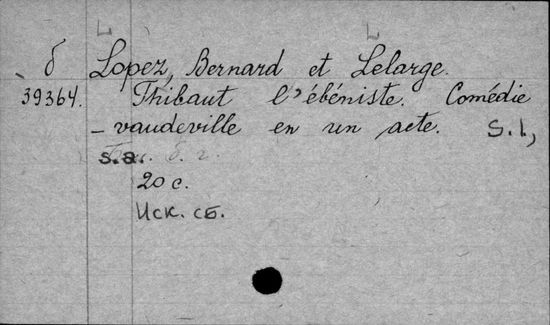 L L
б Lopez, Bernard et Lelarge.
39364. Thibaut l'ébéniste. Comédie
- vaudeville en un acte. S. l.,
s.a.
20 c.
Иск. сб.